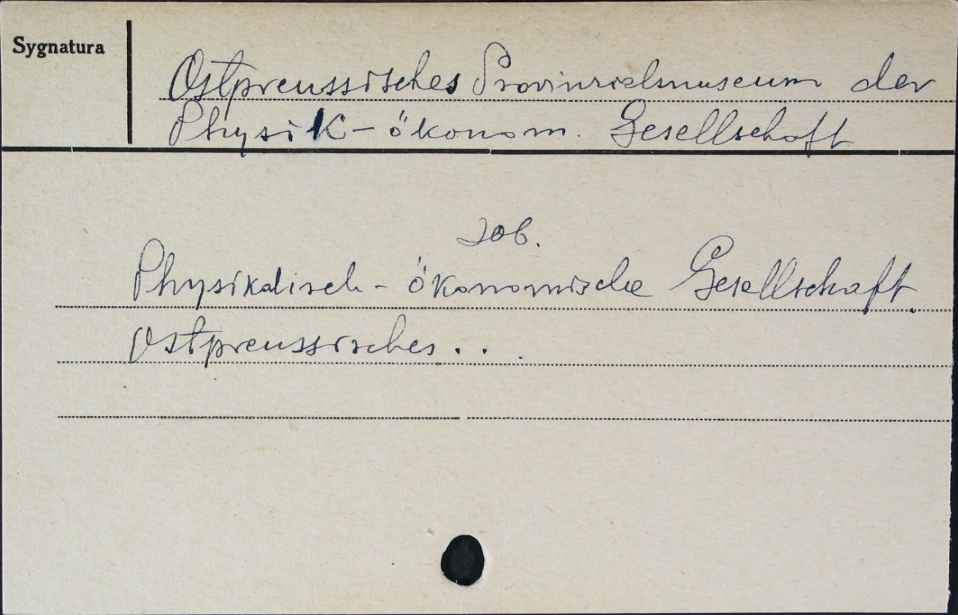 Sygnatura
Ostpreussisches Provinzialmuseum der
Physik-ökonom. Gesellschaft
zob.
Physikalisch-ökonomische Gesellschaft.
Ostpreussisches...